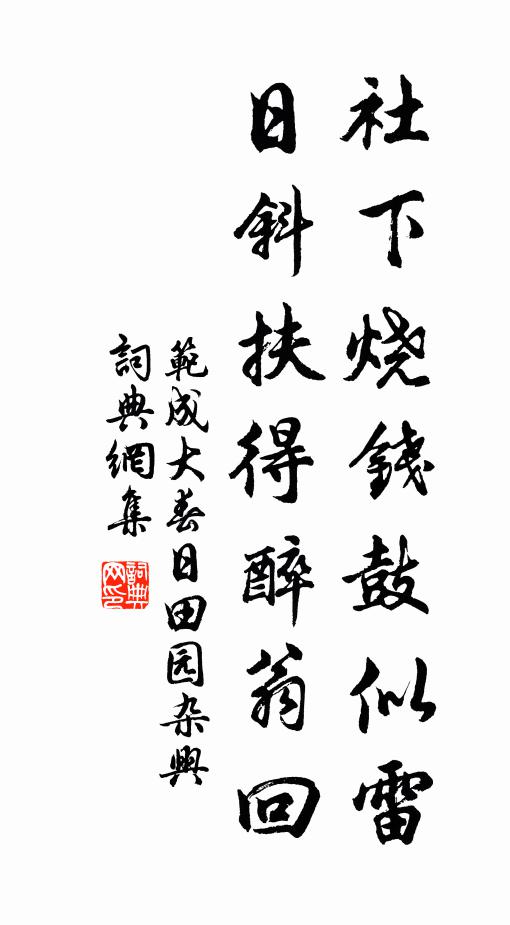 社下烧錢鼓似雷
日斜扶得醉翁回
範成大春日田园杂興
詞典網集
詞典网印